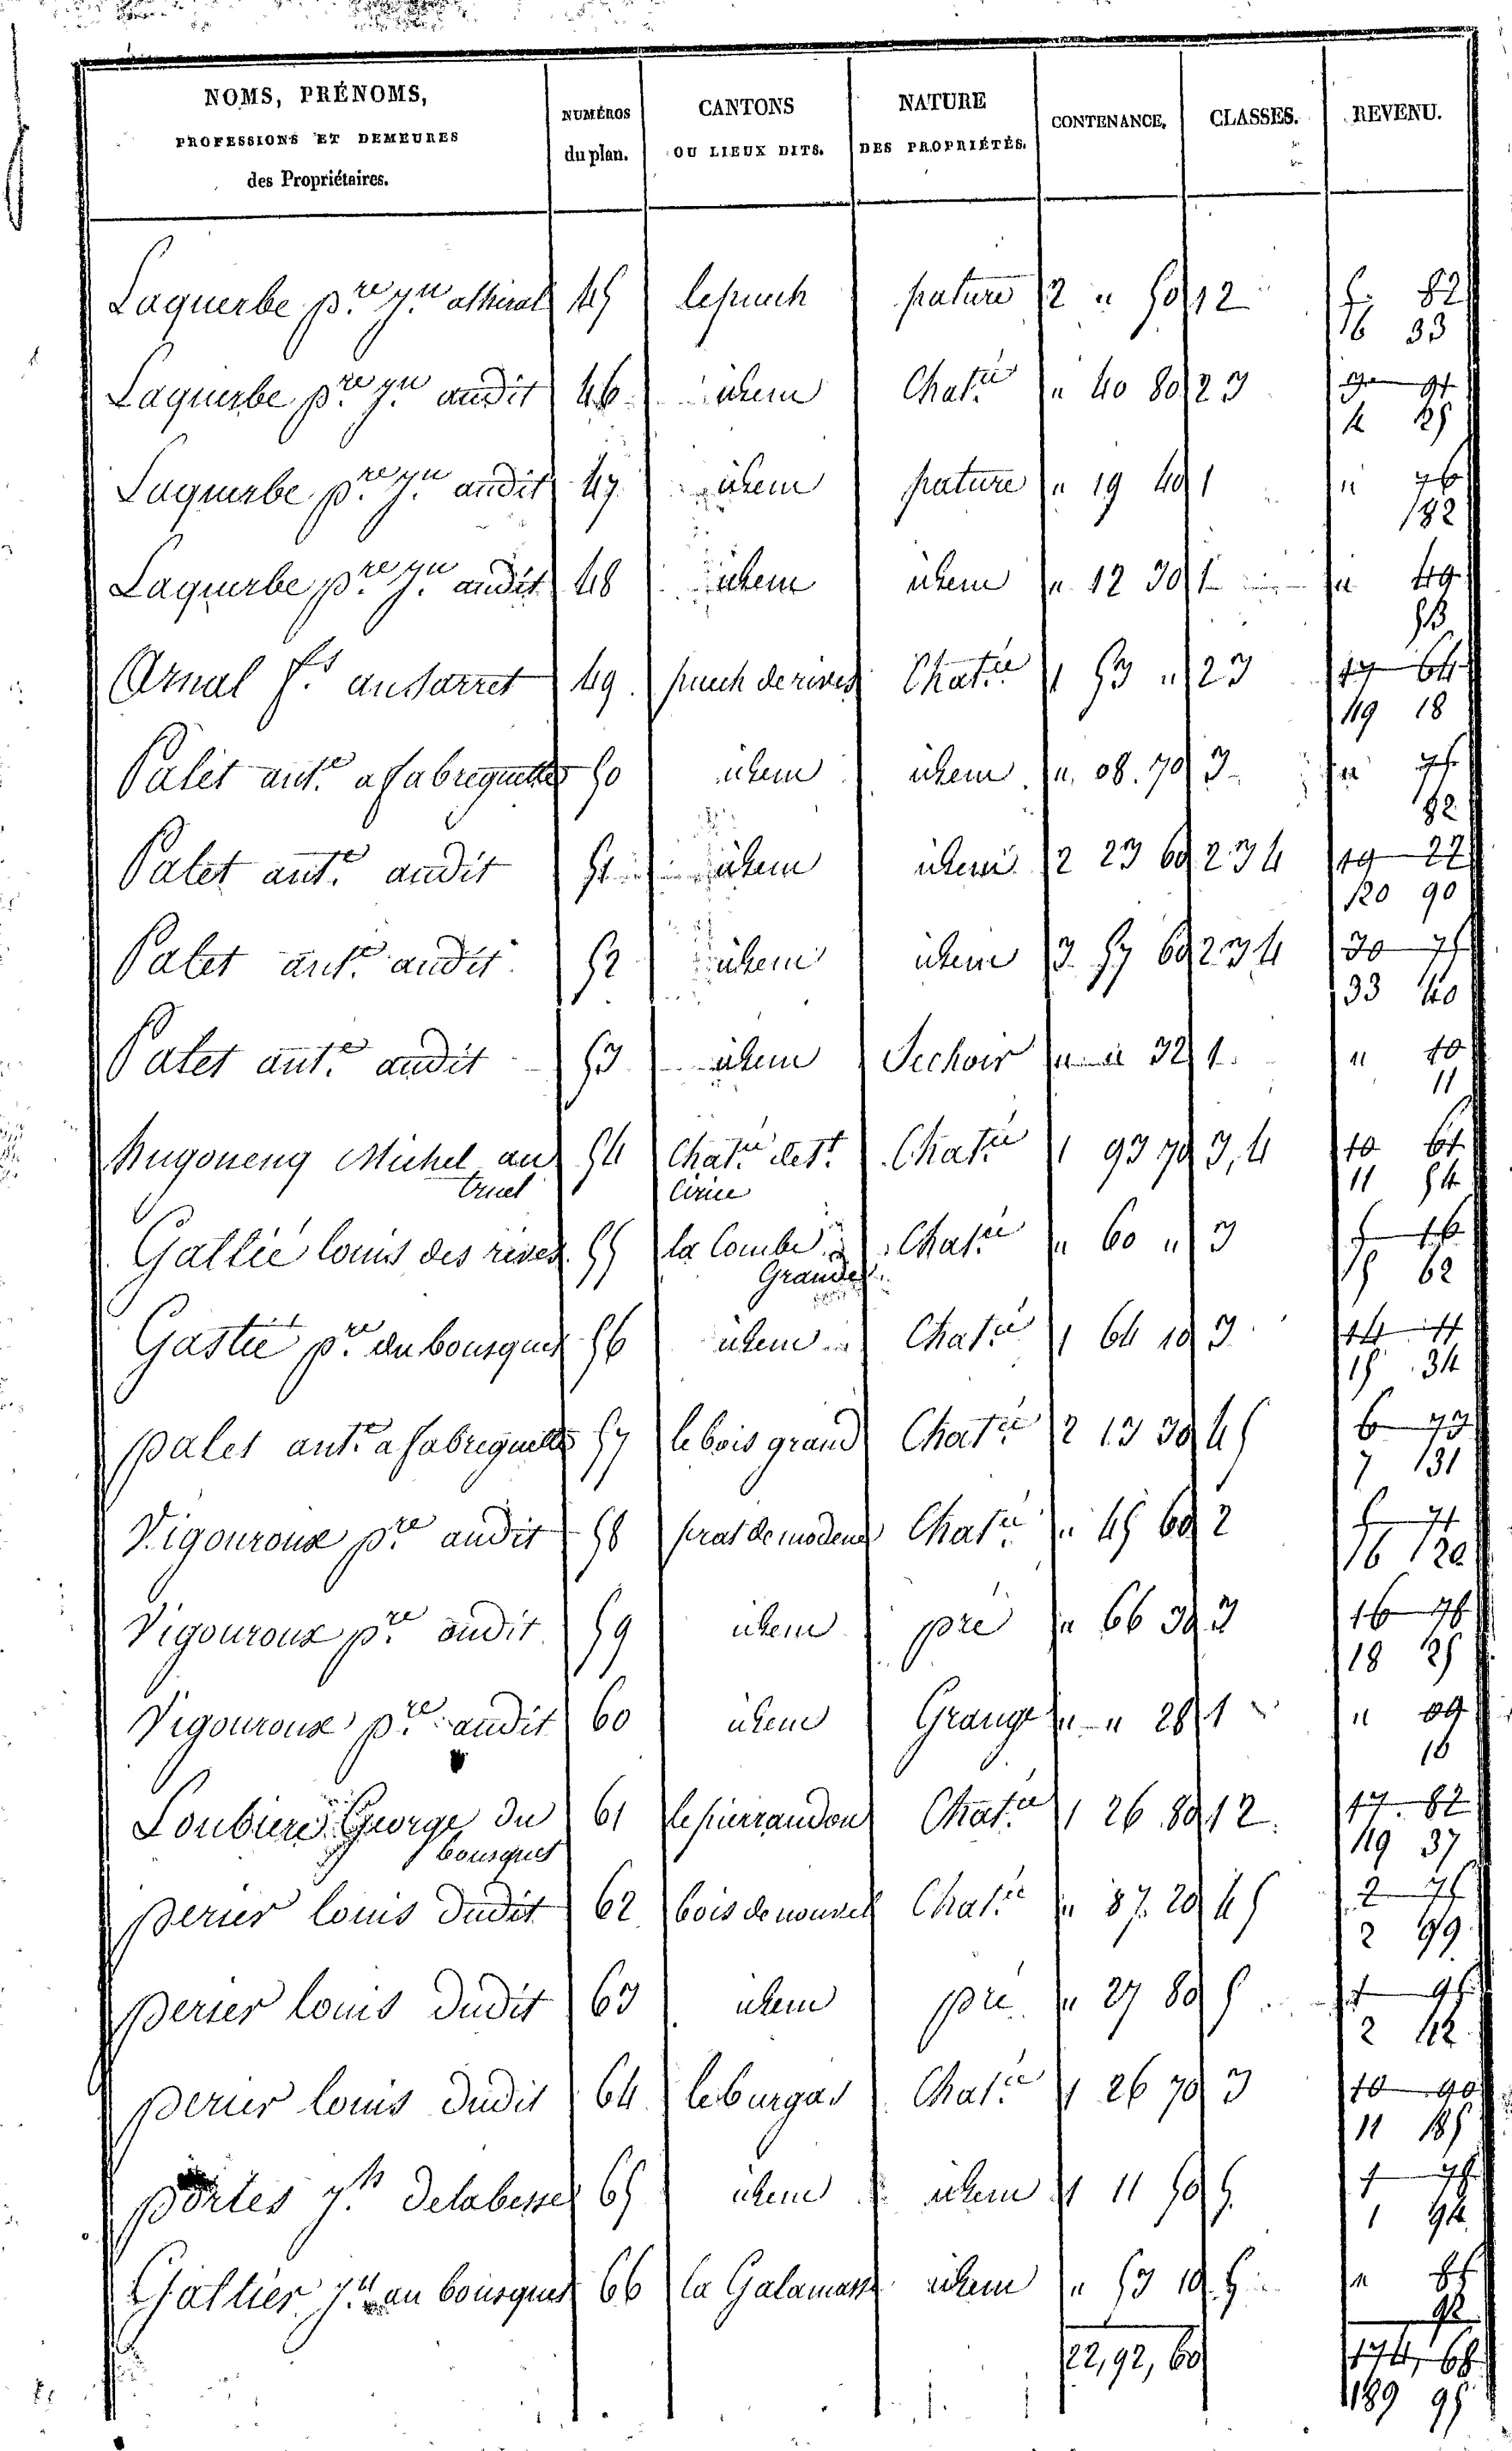 NOMS, PRÉNOMS,
PROFESSIONS ET DEMEURES
des Propriétaires.
NUMÉROS
du plan.
CANTONS
OU LIEUX DITS.
NATURE
DES PROPRIÉTÉS.
CONTENANCE.
CLASSES.
REVENU.
Laquerbe p.re j.n 45 lepuech pature 2 " 50 12 5. 82
6 33
Laquerbe p.re j.n audit 46 idem Chat.ie " 40 80 23
4 25
Laquerbe p.re j.n audit 47 idem pature " 19 40 1 " 76
82
Laquerbe p.re j.n audit 48 idem idem " 12 30 1 " 49
53
Arnal f.s ausarret 49 puech de rives Chat.ie 1 53 " 23 17 64
19 18
Palet ant.e afabreguettes 50 idem idem " 08. 70 3 " 75
82
Palet ant.e audit 51 idem idem 2 23 60 234 19 22
20 90
Palet ant.e audit 52 idem idem 3 57 60 234 30 75
33 40
Palet ant.e audit 53 idem Sechoir " " 32 1 " 10
11
Hugoneng Michel au 54 Chat.ie de st. Chat.ie 1 93 70 3,4 10 61
truel Cirice 11 54
Galtié louis des rives 55 la Combe Chat.ie " 60 " 3 5 16
Grande 5 62
Gastié p.re du bousquet 56 idem Chat.ie 1 64 10 3 14 11
15 34
palet ant.e afabreguettes 57 le bois grand Chat.ie 2 13 30 45 6 73
7 31
Vigouroux p.re audit 58 prat de modene Chat.ie " 45 60 2 5 71
6 20
Vigouroux p.re audit 59 idem pré " 66 30 3 16 76
18 25
Vigouroux p.re audit 60 idem Grange " " 28 1 " 09
10
Loubiere George du 61 lepierrandou Chat.ie 1 26 80 12. 17. 82
bousquet 19 37
perier louis dudit 62 bois de nouvel Chat.ie " 87. 20 45 2 75
2 99
perier louis dudit 63 idem pré " 27 80 5 1 95
2 12
perier louis dudit 64 leburgas Chat.ie 1 26 70 3 10 90
11 85
portes j.h delabesse 65 idem idem 1 11 50 5. 1 78
1 94
Galtier j.n au bousquet 66 la Galamasse idem " 53 10 5 " 85
92
22,92,60 174,68
189 95